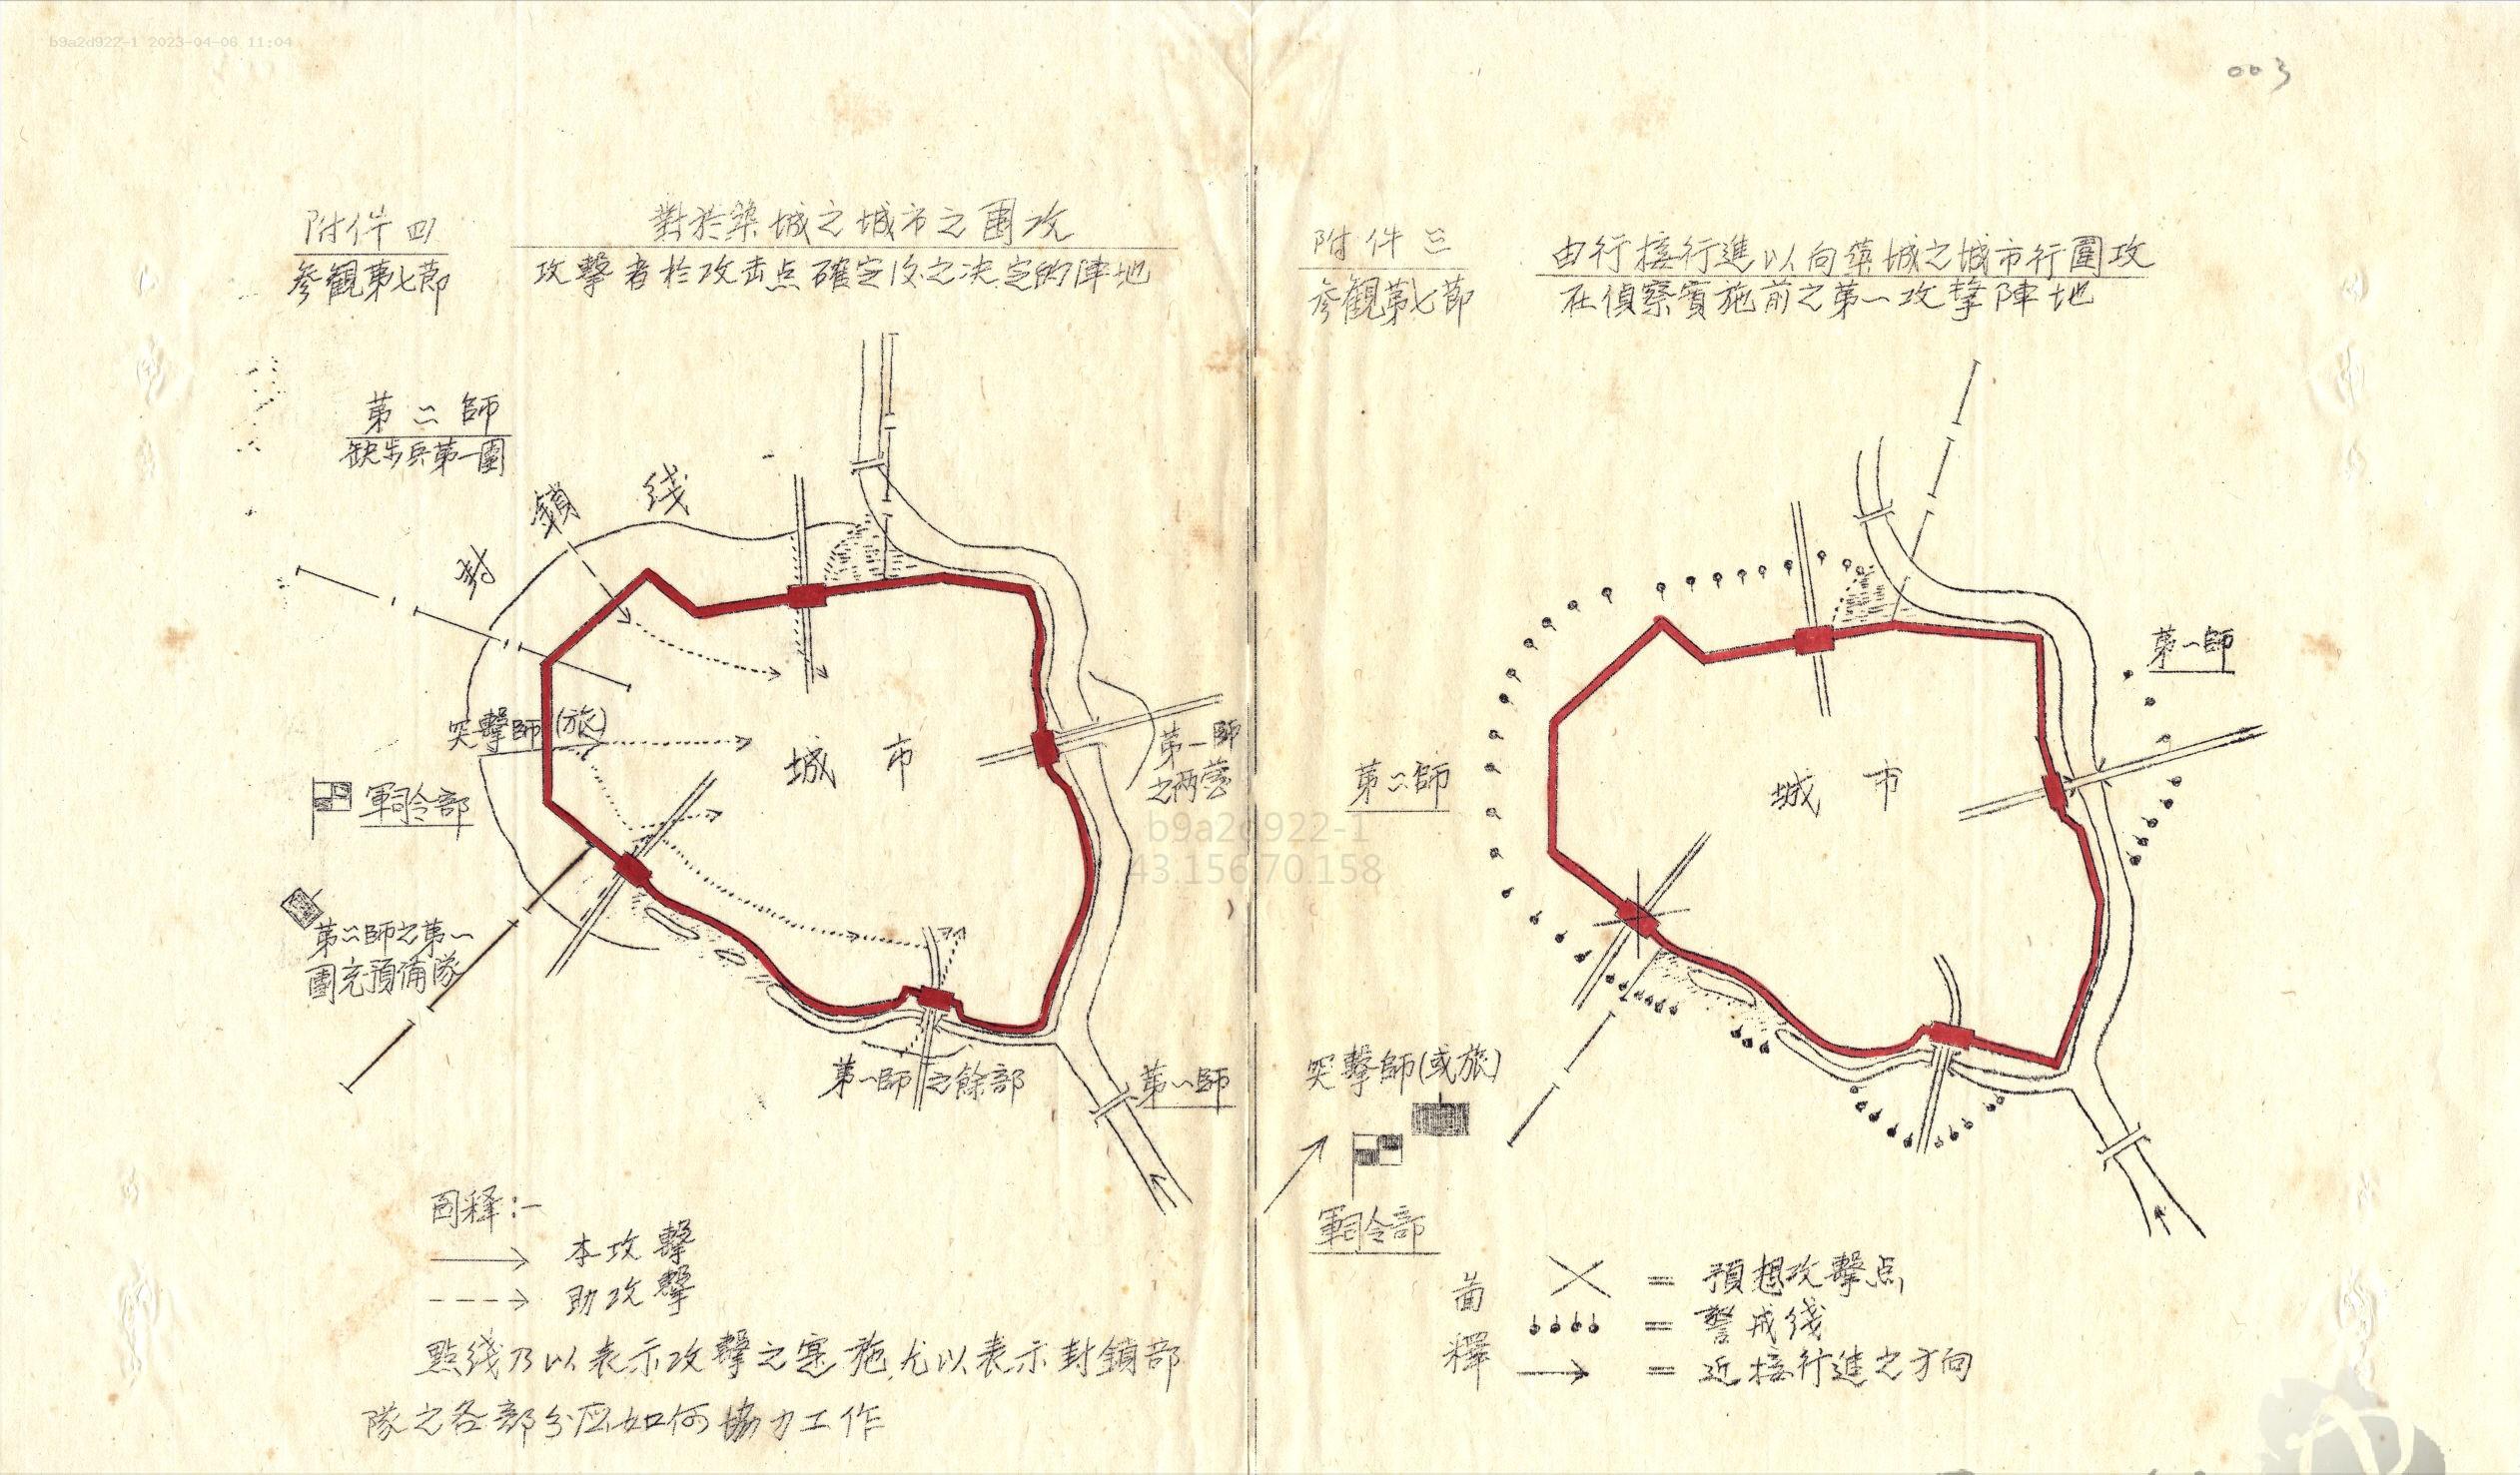 b9a2d922-1 2023-04-06 11:04
003
附件三
參觀第七節
由行接行進以向築城之城市行圍攻
在偵察實施前之第一攻擊陣地
第一師
第二師
城市
突擊師(或旅)
軍司令部
圖釋
= 預想攻擊点
= 警戒线
= 近接行進之方向
附件四
參觀第七節
對於築城之城市之圍攻
攻擊者於攻击点確定后之决定的陣地
第二師
缺步兵第一團
封鎖线
突擊師(旅)
軍司令部
城市
第一師
之两营
第二師之第一
團充預備隊
第一師之餘部
第一師
图释:-
本攻擊
助攻擊
點线乃以表示攻擊之寔施尤以表示封鎖部
隊之各部分应如何協力工作
b9a2d922-1
43.156.70.158